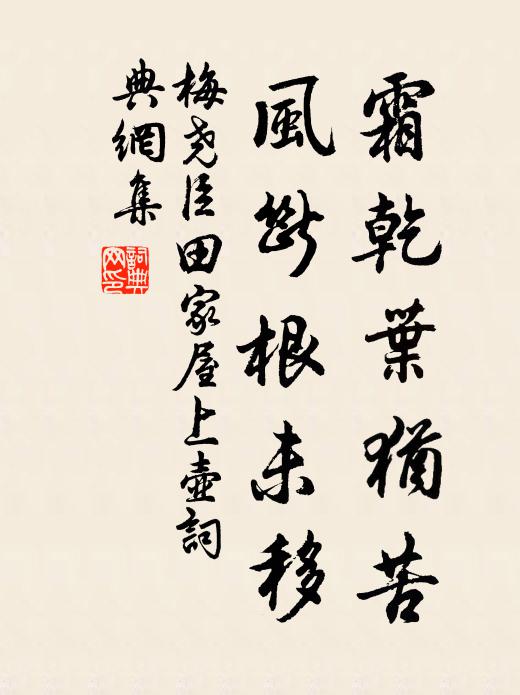 霜乾葉猶苦
風斷根未移
梅堯臣田家屋上壺詞
典網集
詞典
网印